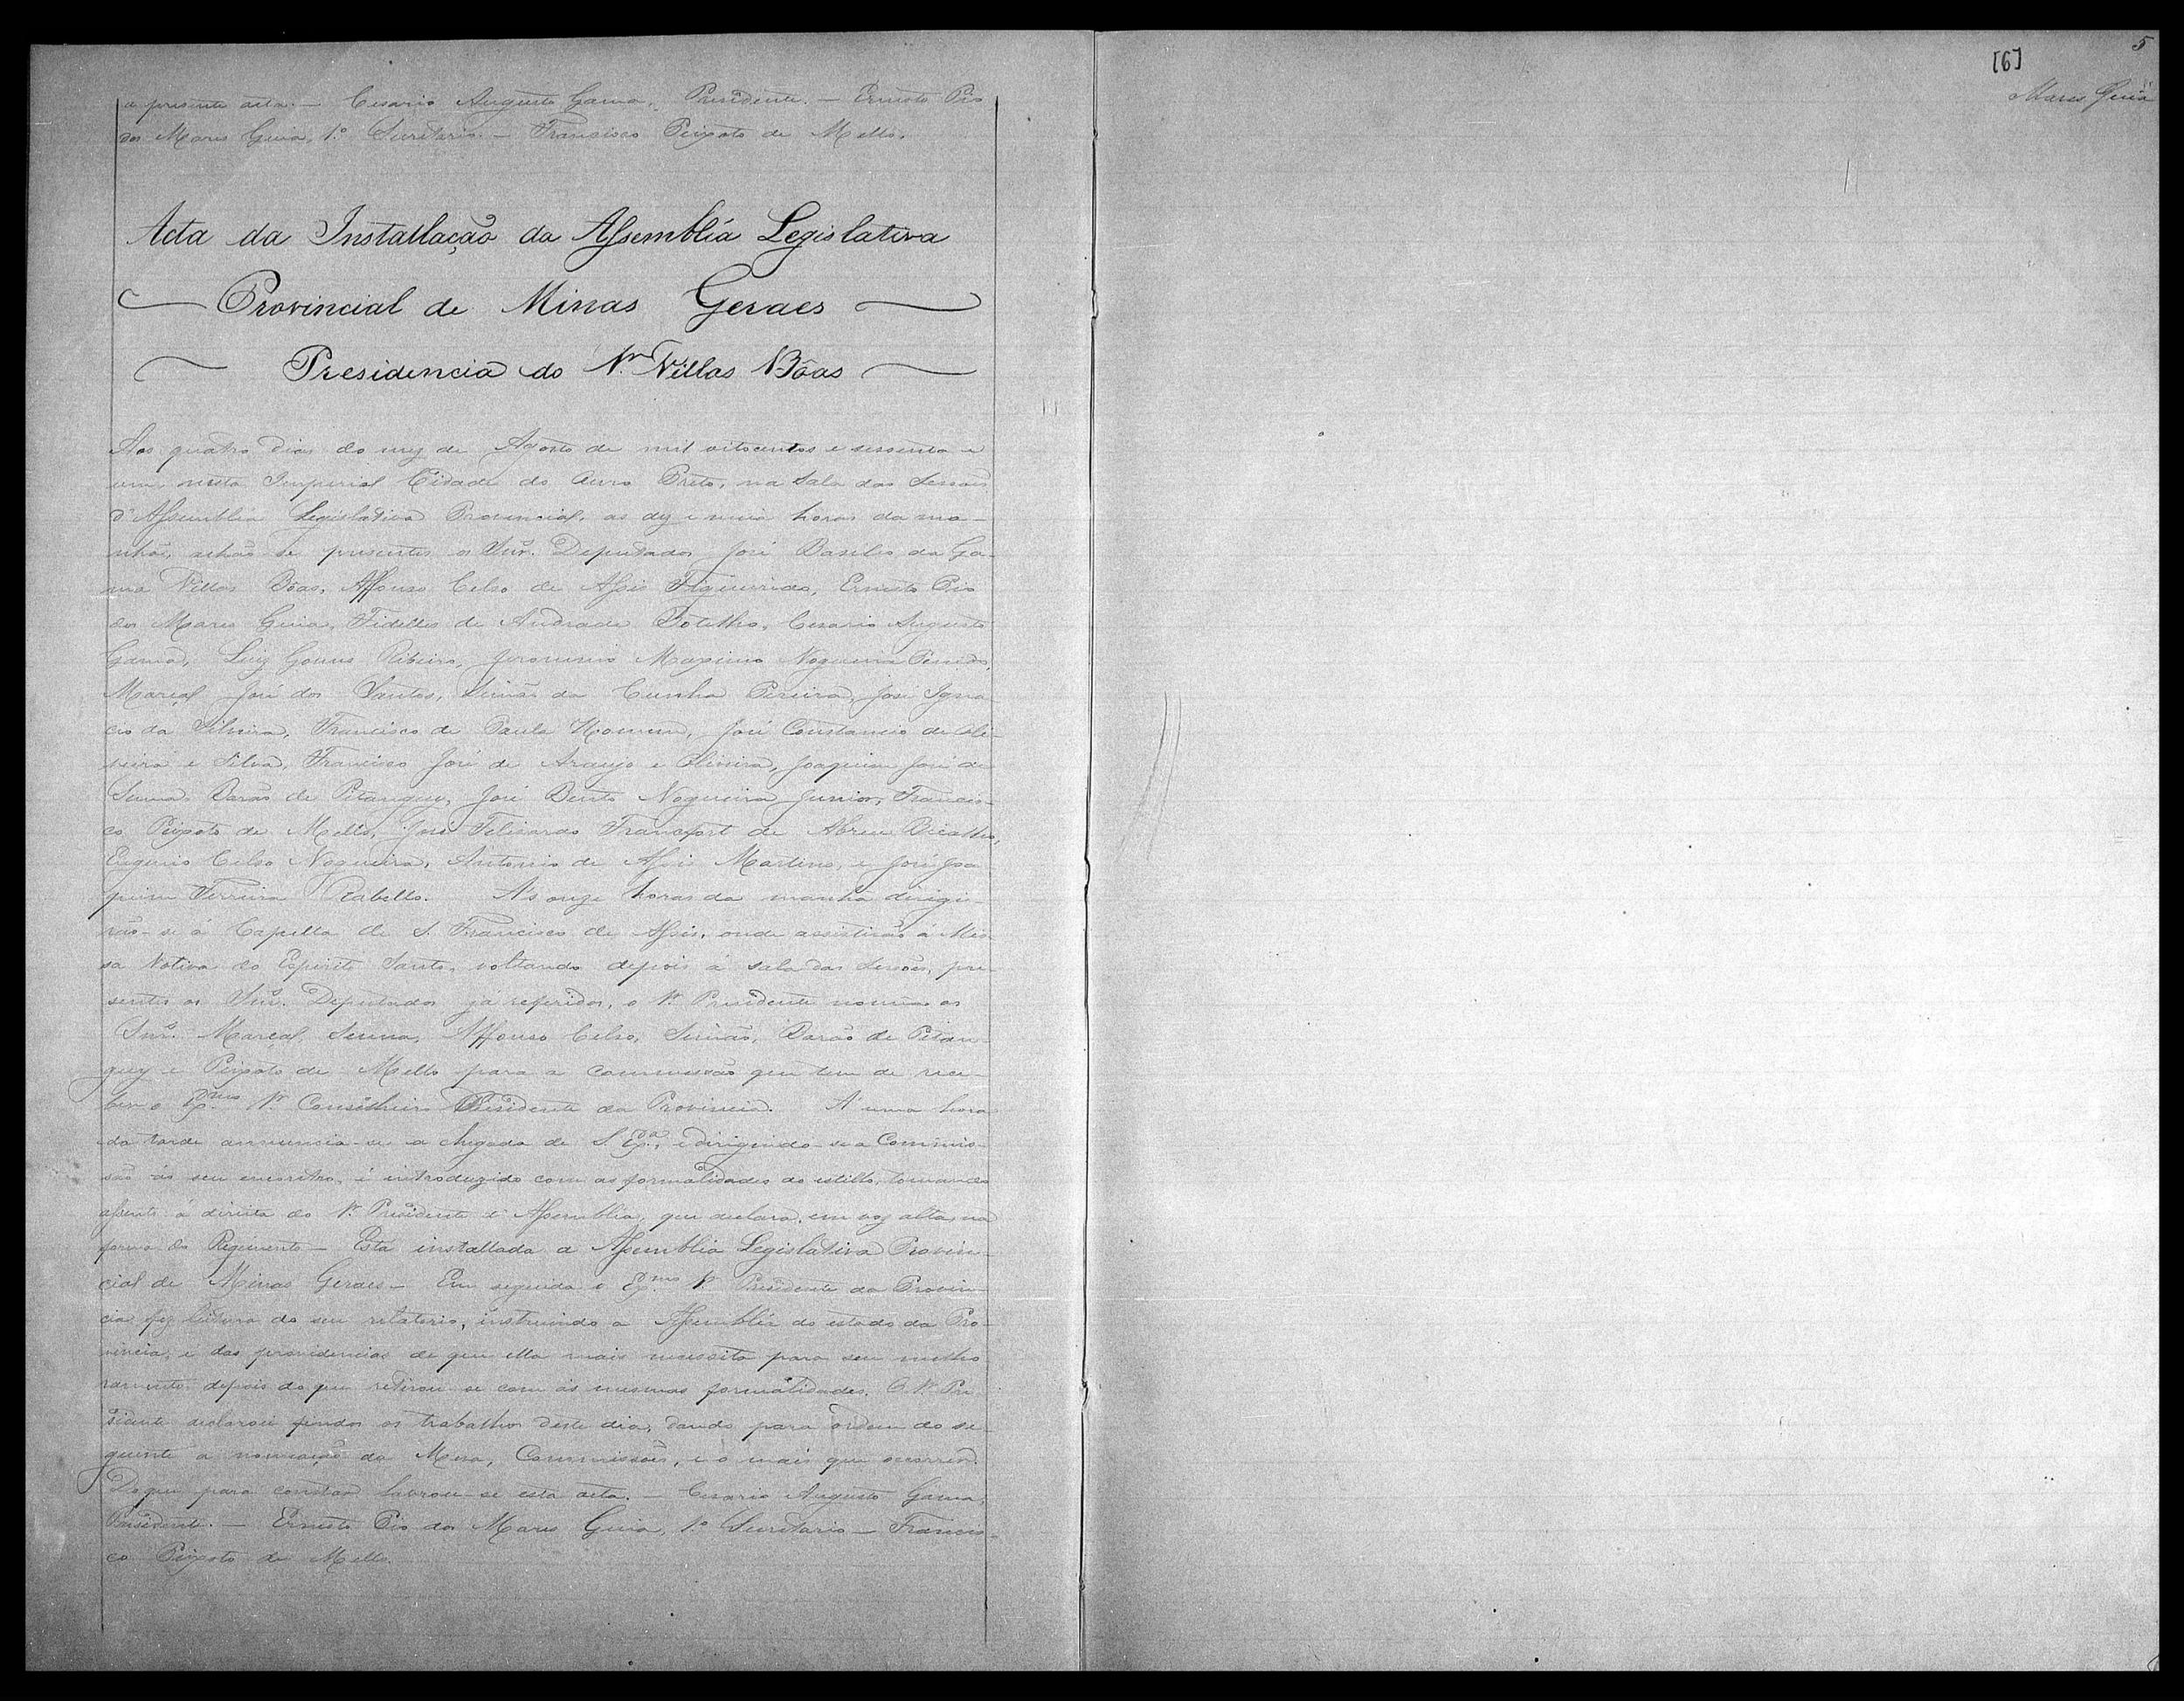 a presente acta. — Cesario Augusto Gama, Presidente. — Ernesto Pio
dos Mares Guia, 1.º Secretario — Francisco Peixoto de Mello.
Acta da Installação da Assembléa Legislativa
Provincial de Minas Geraes
Presidencia do Sr. Villas Bôas
Aos quatro dias do mez de Agosto de mil oitocentos e sessenta e
um nesta Imperial Cidade do Ouro Preto, na Sala das Sessões
d'Assembléa Legislativa Provincial, as dez e meia horas da ma-
nhãa, achão se presentes os Snrs. Deputados José Basileo da Ga-
ma Villas Bôas, Affonso Celso de Assis Figueiredo, Ernesto Pio
dos Mares Guia, Fidelles de Andrade Botelho, Cesario Augusto
Gama, Luiz Gomes Ribeiro, Jeronimo Maximo Nogueira Penido,
Marçal José dos Santos, Simão da Cunha Pereira, José Igna-
cio da Silveira, Francisco de Paula, José Constancio de Oli-
veira e Silva, Francisco José de Araujo e Oliveira, Joaquim José de
Senna, Barão de Pitanguy, José Bento Nogueira Junior, Francis-
co Peixoto de Mello, José Felicardo Francfort de Abreu Bicalho,
Eugenio Celso Nogueira, Antonio de Assis Martins, e José Joa
quim Ferreira Rabello. A's onze horas da manhã dirigi-
rão-se á Capella de S. Francisco de Assis, onde assistirão á Mis-
sa Votiva do Espirito Santo, voltando depois á sala das Sessões, pre-
sentes os Snrs. Deputados já referidos, o Sr. Presidente nomea os
Snrs. Marçal, Senna, Affonso Celso, Simão, Barão de Pitan-
guy e Peixoto de Mello para a commissão que tem de rece-
ber o Ex.mo Sr. Conselheiro Presidente da Provincia. A' uma hora
da tarde annuncia-se a chegada de S. Ex.a, e dirigindo-se a Commis-
são ao seu encontro, é introduzido com as formalidades do estillo, tomando
assento á direita do Sr. Presidente d'Assembléa, que declara, em voz alta, na
forma do Regimento — Está installada a Assembléa Legislativa Provin-
cial de Minas Geraes — Em seguida o Ex.mo Sr. Presidente da Provin-
cia fez leitura do seu relatorio, instruindo a Assembléa do estado da Pro-
vincia, e das providencias de que ella mais necessita para seu melho
ramento, depois do que retirou se com as mesmas formalidades. O Sr. Pre-
sidente declarou findos os trabalhos deste dia, dando para ordem do se-
guinte a nomeação da Mesa, Commissões, e o mais que occorrer.
Do que para constar lavrou-se esta acta. — Cesario Augusto Gama,
Presidente. — Ernesto Pio dos Mares Guia, 1.º Secretario — Francis-
co Peixoto de Mello.
5
[6]
Mares Guia